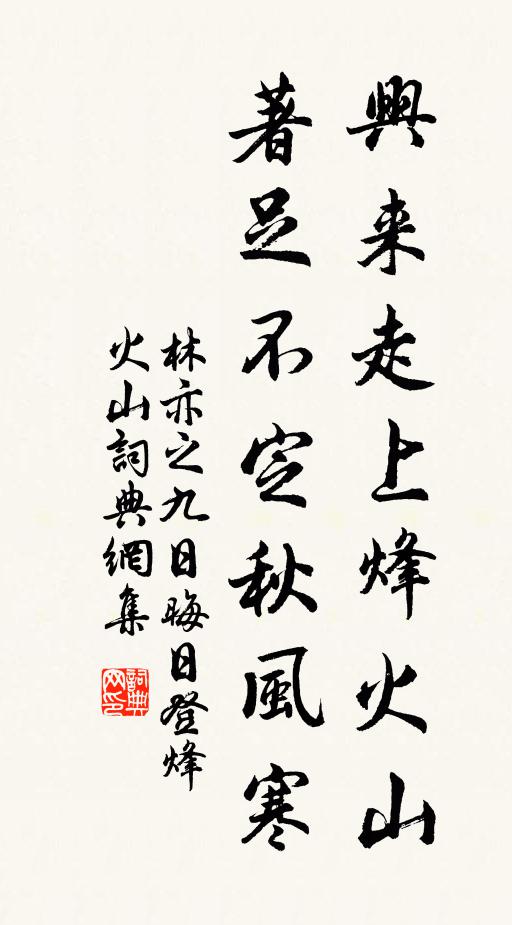 興来走上烽火山
著足不定秋風寒
林亦之九日晦日登烽
火山詞典網集
詞典
网印